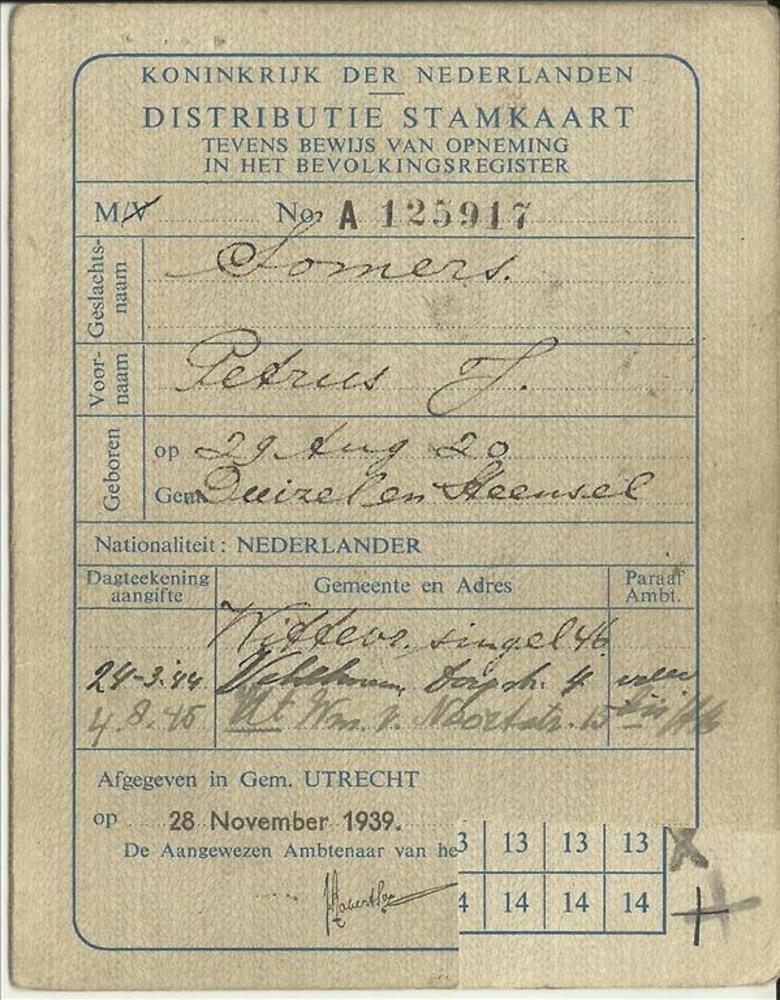 KONINKRIJK DER NEDERLANDEN
DISTRIBUTIE STAMKAART
TEVENS BEWIJS VAN OPNEMING
IN HET BEVOLKINGSREGISTER
M/V No. A 125917
Geslachts-
naam
Somers.
Voor-
naam
Petrus J.
Geboren
op 29 Aug 20
Gem. Duizel en Steensel
Nationaliteit: NEDERLANDER
Dagteekening
aangifte
Gemeente en Adres
Paraaf
Ambt.
Wittevr. singel 46
24-3-'44 Dorpstr. 4
4.8.45 Ut Wm. v. Noortstr. 15
Afgegeven in Gem. UTRECHT
op 28 November 1939.
De Aangewezen Ambtenaar van he
3 13 13 13 X
4 14 14 14 +